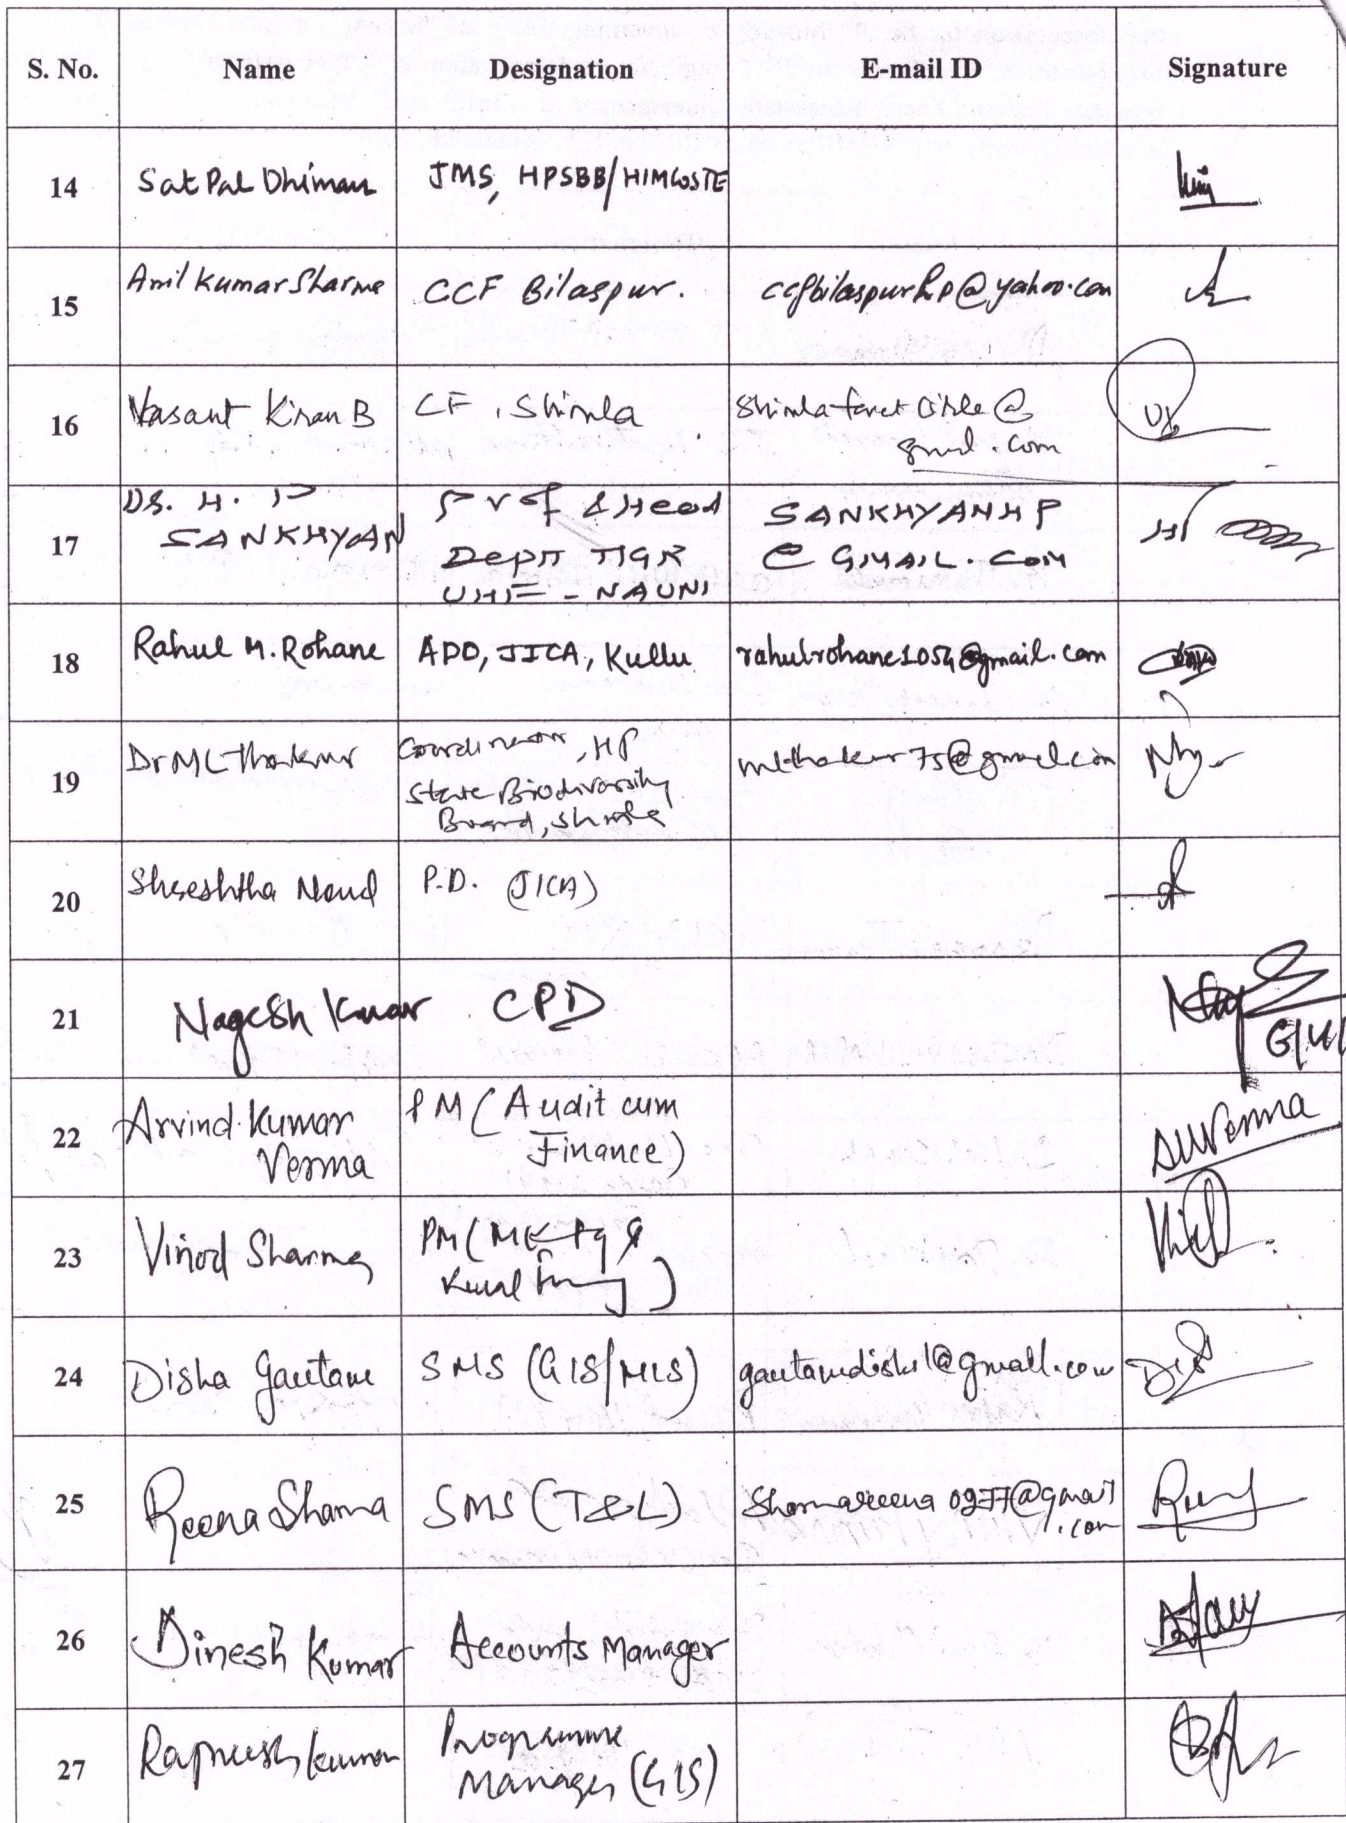 S. No. Name Designation E-mail ID Signature
14 Sat Pal Dhiman JMS, HPSBB/HIMCOSTE
15 Anil Kumar Sharma CCF Bilaspur. ccfbilaspurhp@yahoo.com
16 Vasant Kiran B CF, Shimla
17 Dr. H. P
SANKHYAN
Prof & Head
Deptt TIGR
UHF - NAUNI
SANKHYANHP
@ GMAIL.COM
18 Rahul M. Rohane APD, JICA, Kullu rahulrohane1054@gmail.com
19 Dr ML Thakur Coordinator, HP
State Biodiversity
Board, Shimla
mlthakur75@gmail.com
20 Shreshtha Nand P.D. (JICA)
21 Nagesh Kumar CPD
22 Arvind Kumar
Verma
PM (Audit cum
Finance)
AKVerma
23 Vinod Sharma PM (Mktg &
Rural
24 Disha Gautam SMS (GIS/MIS)
25 Reena Sharma SMS (T&L) Sharmareena0277@gmail
.com
26 Dinesh Kumar Accounts Manager
27 Rajneesh Kumar Programme
Manager (GIS)